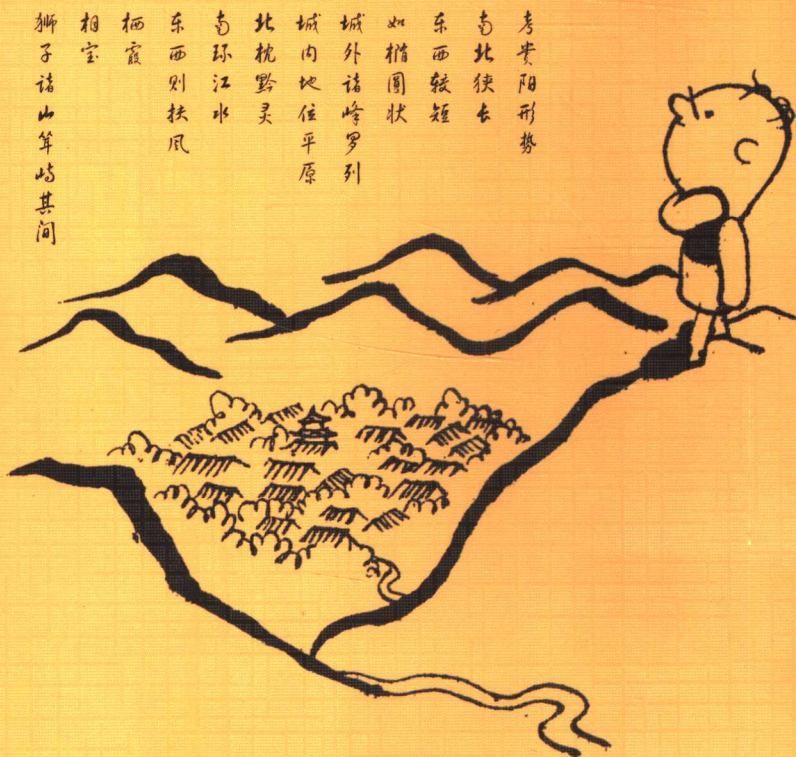 考贵阳形势
南北狭长
东西较短
如椭圆状
城外诸峰罗列
城内地位平原
北枕黔灵
南环江水
东西则扶风
栖霞
相宝
狮子诸山耸峙其间